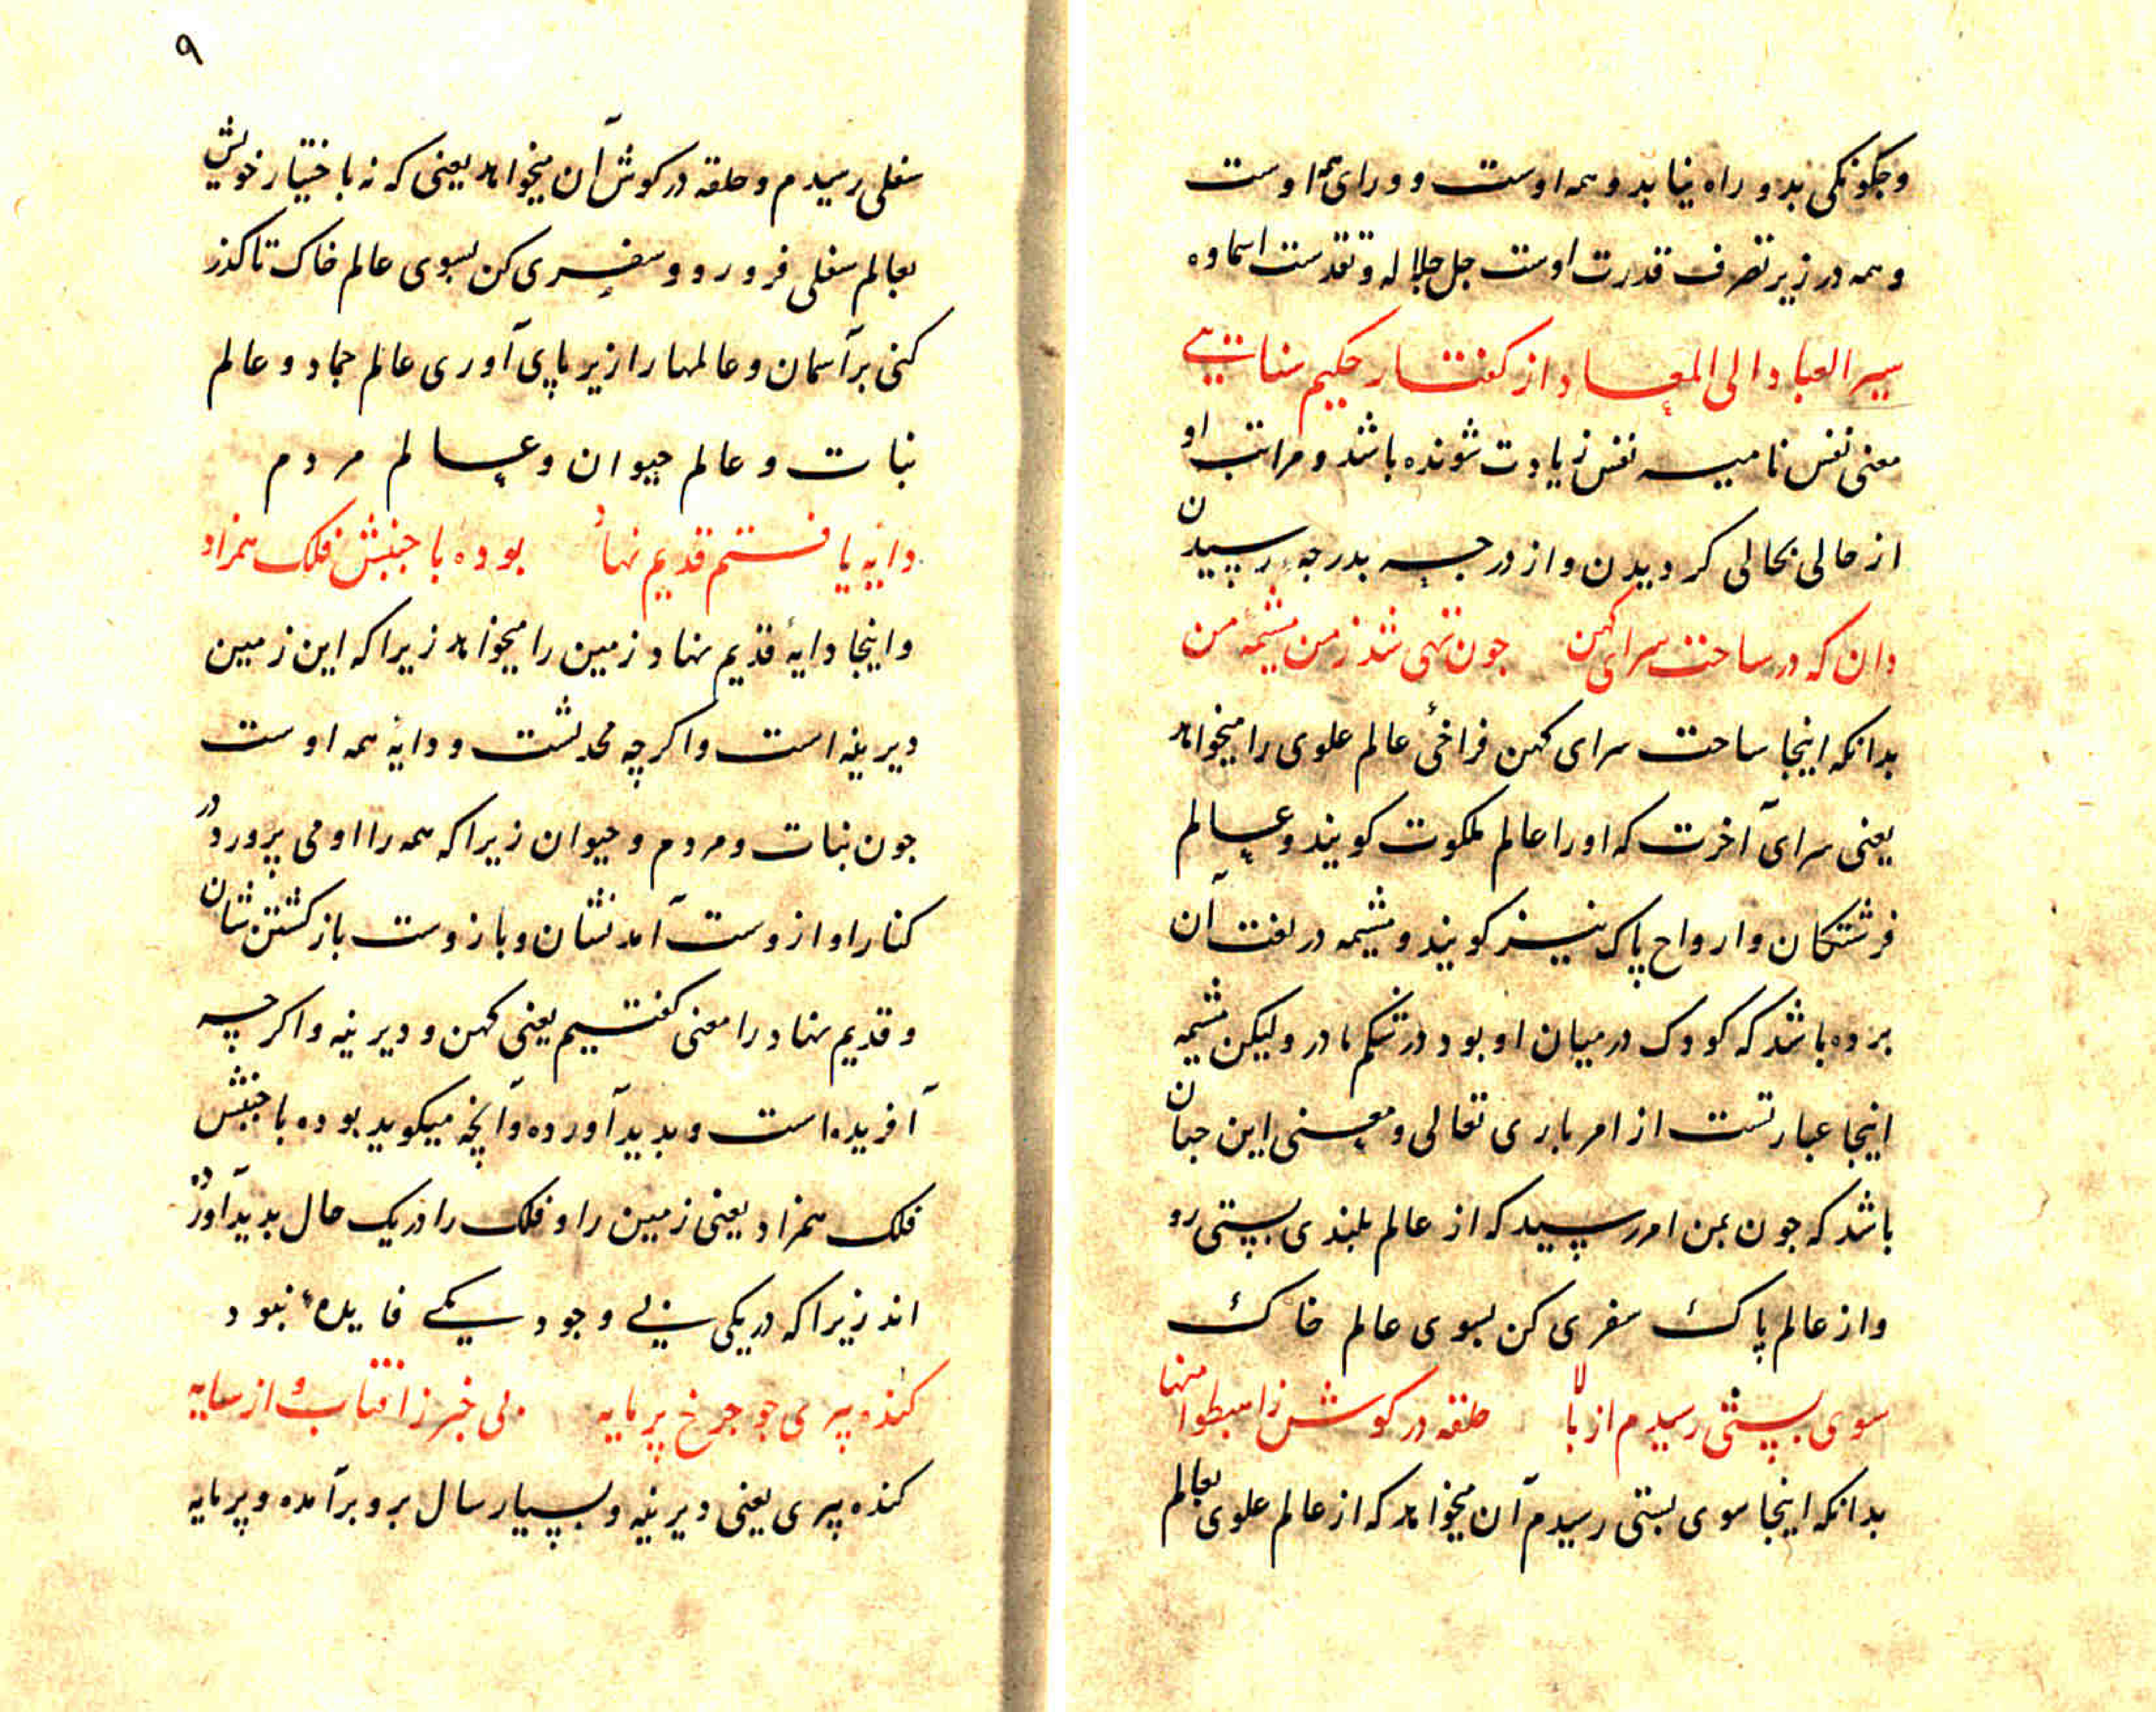 وجكونكى بدو راه نيابد و همه اوست و وراى همه اوست
و همه در زير تصرف قدرت اوست جل جلاله و تقدست اسماوه
سير العباد الى المعاد از كفتار حكيم سنائى
معنى نفس ناميه نفس زيادت شونده باشد و مراتب او
از حالى بحالى كرديدن و از درجه بدرجه رسيدن
دان كه در ساحت سراى كهن جون تهى شد ز من مشيمه من
بدانكه اينجا ساحت سراى كهن فراخئ عالم علوى را ميخواهد
يعنى سراى آخرت كه او را عالم ملكوت كويند و عالم
فرشتكان و ارواح پاك نيز كويند و مشيمه در لغت آن
برده باشد كه كودك در ميان او بود در شكم مادر و ليكن مشيمه
اينجا عبارتست از امر بارى تعالى و معنى اين جنان
باشد كه جون بمن امر رسيد كه از عالم بلندى بپستى رو
و از عالم پاك سفرى كن بسوى عالم خاك
سوى پستى رسيدم از بالا حلقه در كوش ز اهبطوا منها
بدانكه اينجا سوى پستى رسيدم آن ميخواهد كه از عالم علوى بعالم
٩
سفلى رسيدم و حلقه در كوش آن ميخواهد يعنى كه نه باختيار خويش
بعالم سفلى فرو رو و سفرى كن بسوى عالم خاك تا كذر
كنى بر آسمان و عالمها را زير پاى آورى عالم جماد و عالم
نبات و عالم حيوان و عالم مردم
دايه يافتم قديم نهاد بوده با جنبش فلك همزاد
و اينجا دايهٔ قديم نهاد زمين را ميخواهد زيرا كه اين زمين
ديرينه است و اكرچه محدثست و دايهٔ همه اوست
جون نبات و مردم و حيوان زيرا كه همه را او مى پرورد در
كنار او از وست آمدنشان و باز وست باز كشتن شان
و قديم نهاد را معنى كفتيم يعنى كهن و ديرينه و اكرچه
آفريده است و بديد آورده و آنچه ميكويد بوده با جنبش
فلك همزاد يعنى زمين را و فلك را در يك حال بديد آورده
اند زيرا كه در يكى بى وجود يكى فايده نبود
كنده پيرى جو جرخ پر مايه بى خبر ز افتاب و از سايه
كنده پيرى يعنى ديرينه و بسيار سال برو بر آمده و پر مايه